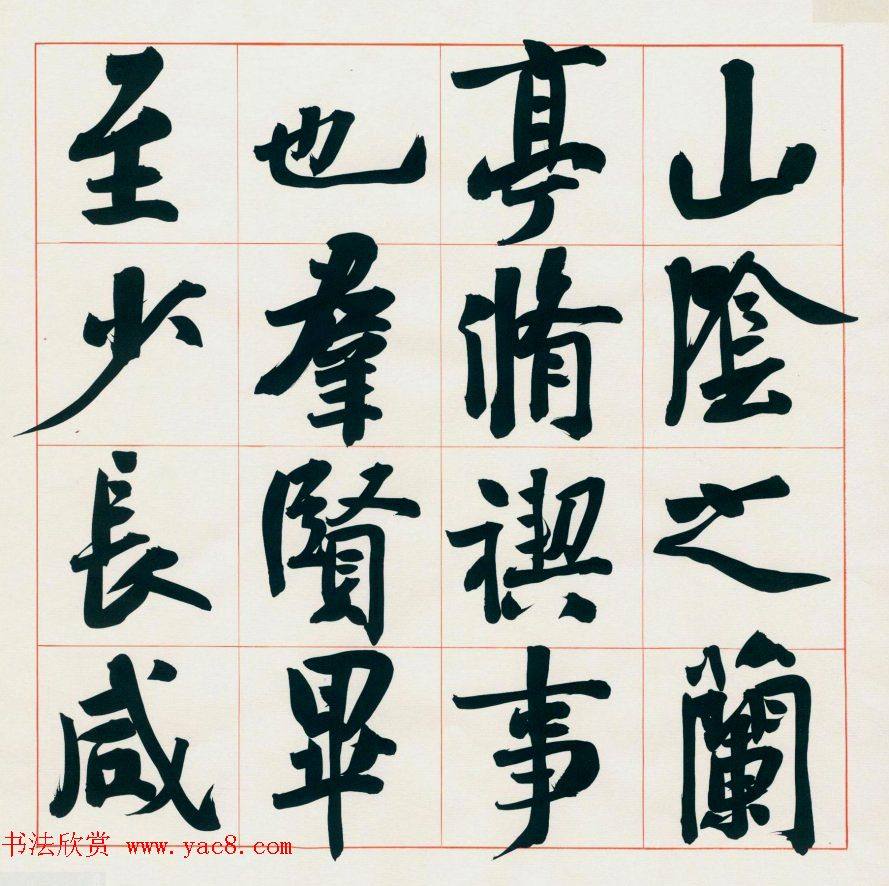 山陰之蘭
亭脩禊事
也羣賢畢
至少長咸
书法欣赏 www.yac8.com